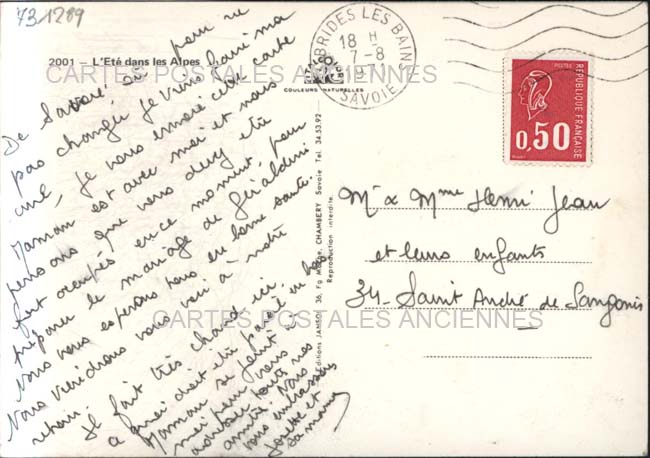 73-1289
2001 - L'Eté dans les Alpes
CARTES POSTALES ANCIENNES
COULEURS NATURELLES
BRIDES LES BAINS
18 H
7-8
SAVOIE
POSTES
REPUBLIQUE FRANÇAISE
0,50
De Savoie, où pour ne
pas changer je viens faire ma
cure, je vous envoie cette carte
Maman est avec moi et nous
pensons que vous devez être
fort occupés en ce moment, pour
préparer le mariage de Géraldine
Nous vous espérons tous en bonne santé.
Nous viendrons vous voir à notre
retour.
Il fait très chaud ici.
Maman se joint à
moi pour vous
adresser toutes nos
amitiés. Nous
vous embrassons
Josette et
sa maman
Editions JANSOL 36, Fg CHAMBERY Savoie Tel. 34.53.92
Reproduction interdite.
Mr & Mme Henri Jean
et leurs enfants
34 - Saint André de Sangonis
CARTES POSTALES ANCIENNES